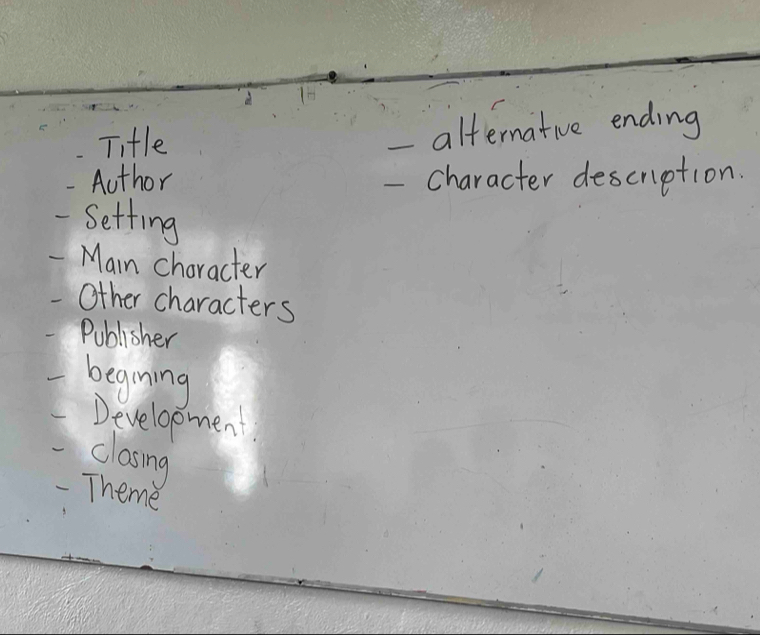 - Title
- Author
- Setting
- Main character
- Other characters
- Publisher
- begining
- Development.
- closing
- Theme
- alternative ending
- Character description.